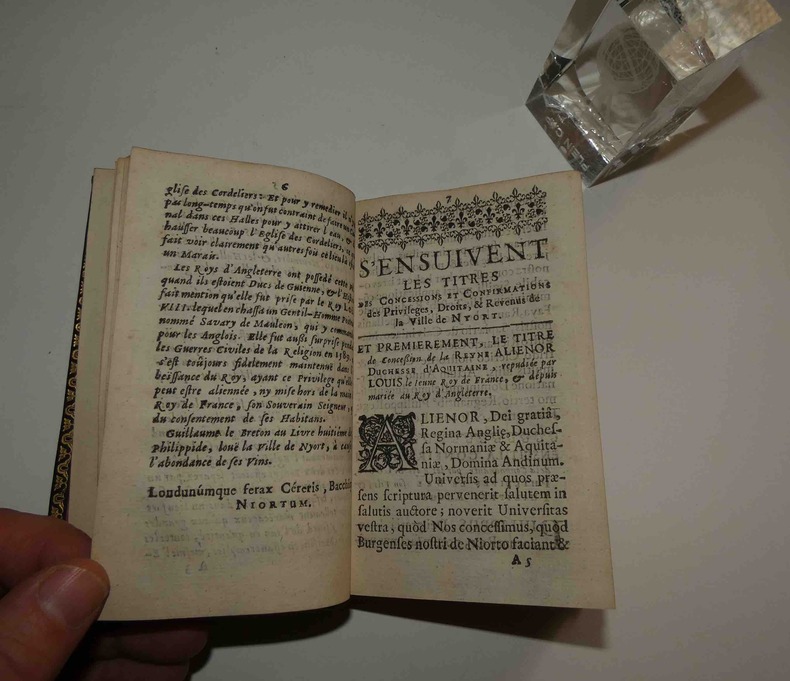 6
glise des Cordeliers: Et pour y remedier il
pas long-temps qu'on fut contraint de faire un
nal dans ces Halles pour y attirer l'eau, &
hausser beaucoup l'Eglise des Cordeliers,
fait voir clairement qu'autresfois ce lieu
un Marais.
Les Roys d'Angleterre ont possedé cette
quand ils estoient Ducs de Guienne; & l'
fait mention qu'elle fut prise par le Roy
VIII. lequel en chassa un Gentil-Homme
nommé Savary de Mauleon, qui y
pour les Anglois. Elle fut aussi surprise
les Guerres Civiles de la Religion en 158
s'est toûjours fidelement maintenuë dans
beissance du Roy, ayant ce Privilege qu'
peut estre aliennée, ny mise hors de la
Roy de France, son Souverain Seigneur
du consentement de ses Habitans.
Guillaume le Breton au Livre huitiéme
Philippide, louë la Ville de Nyort, à
l'abondance de ses Vins.
Londunúmque ferax Céreris,
NIORTUM.
7
S'ENSUIVENT
LES TITRES
DES CONCESSIONS ET CONFIRMATIONS
des Privileges, Droits, & Revenus de
la Ville de NYORT.
ET PREMIEREMENT, LE TITRE
de Concession de la REYNE ALIENOR
DUCHESSE D'AQUITAINE, repudiée par
LOUIS le jeune Roy de France, & depuis
mariée au Roy d'Angleterre.
ALIENOR, Dei gratiâ,
Regina Anglię, Duches-
sa Normaniæ & Aquita-
niæ, Domina Andinum.
Universis ad quos præ-
sens scriptura pervenerit salutem in
salutis auctore; noverit Universitas
vestra, quòd Nos concessimus, quòd
Burgenses nostri de Niorto faciant &
A 5